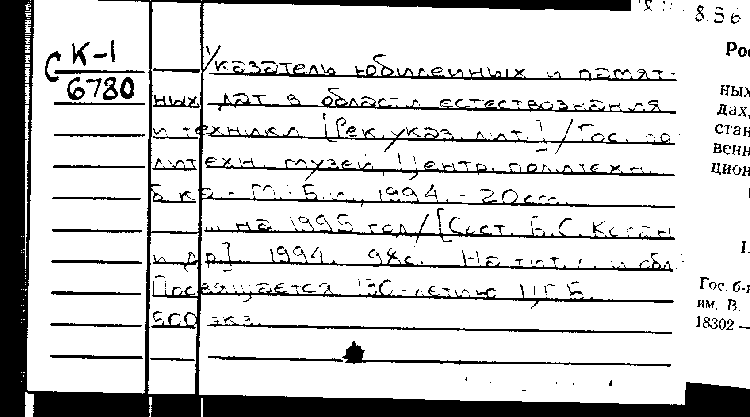 8.56
К-1
С
6780
Указатель юбилейных и памят-
ных дат в области естествознания
и техники [Рек. указ. лит.] / Гос. по
литехн. музей, Центр. политехн.
б-ка. - М.: Б.и., 1994. - 20см.
... на 1995 год / [Сост. Б.С. Коган
и др]. 1994. 98с. На тит. л. и обл.
Посвящается 130-летию ЦПБ.
500 экз.
Рос
ных
дах,
стан
венн
цион
Гос. б-
им. В.
18302 —